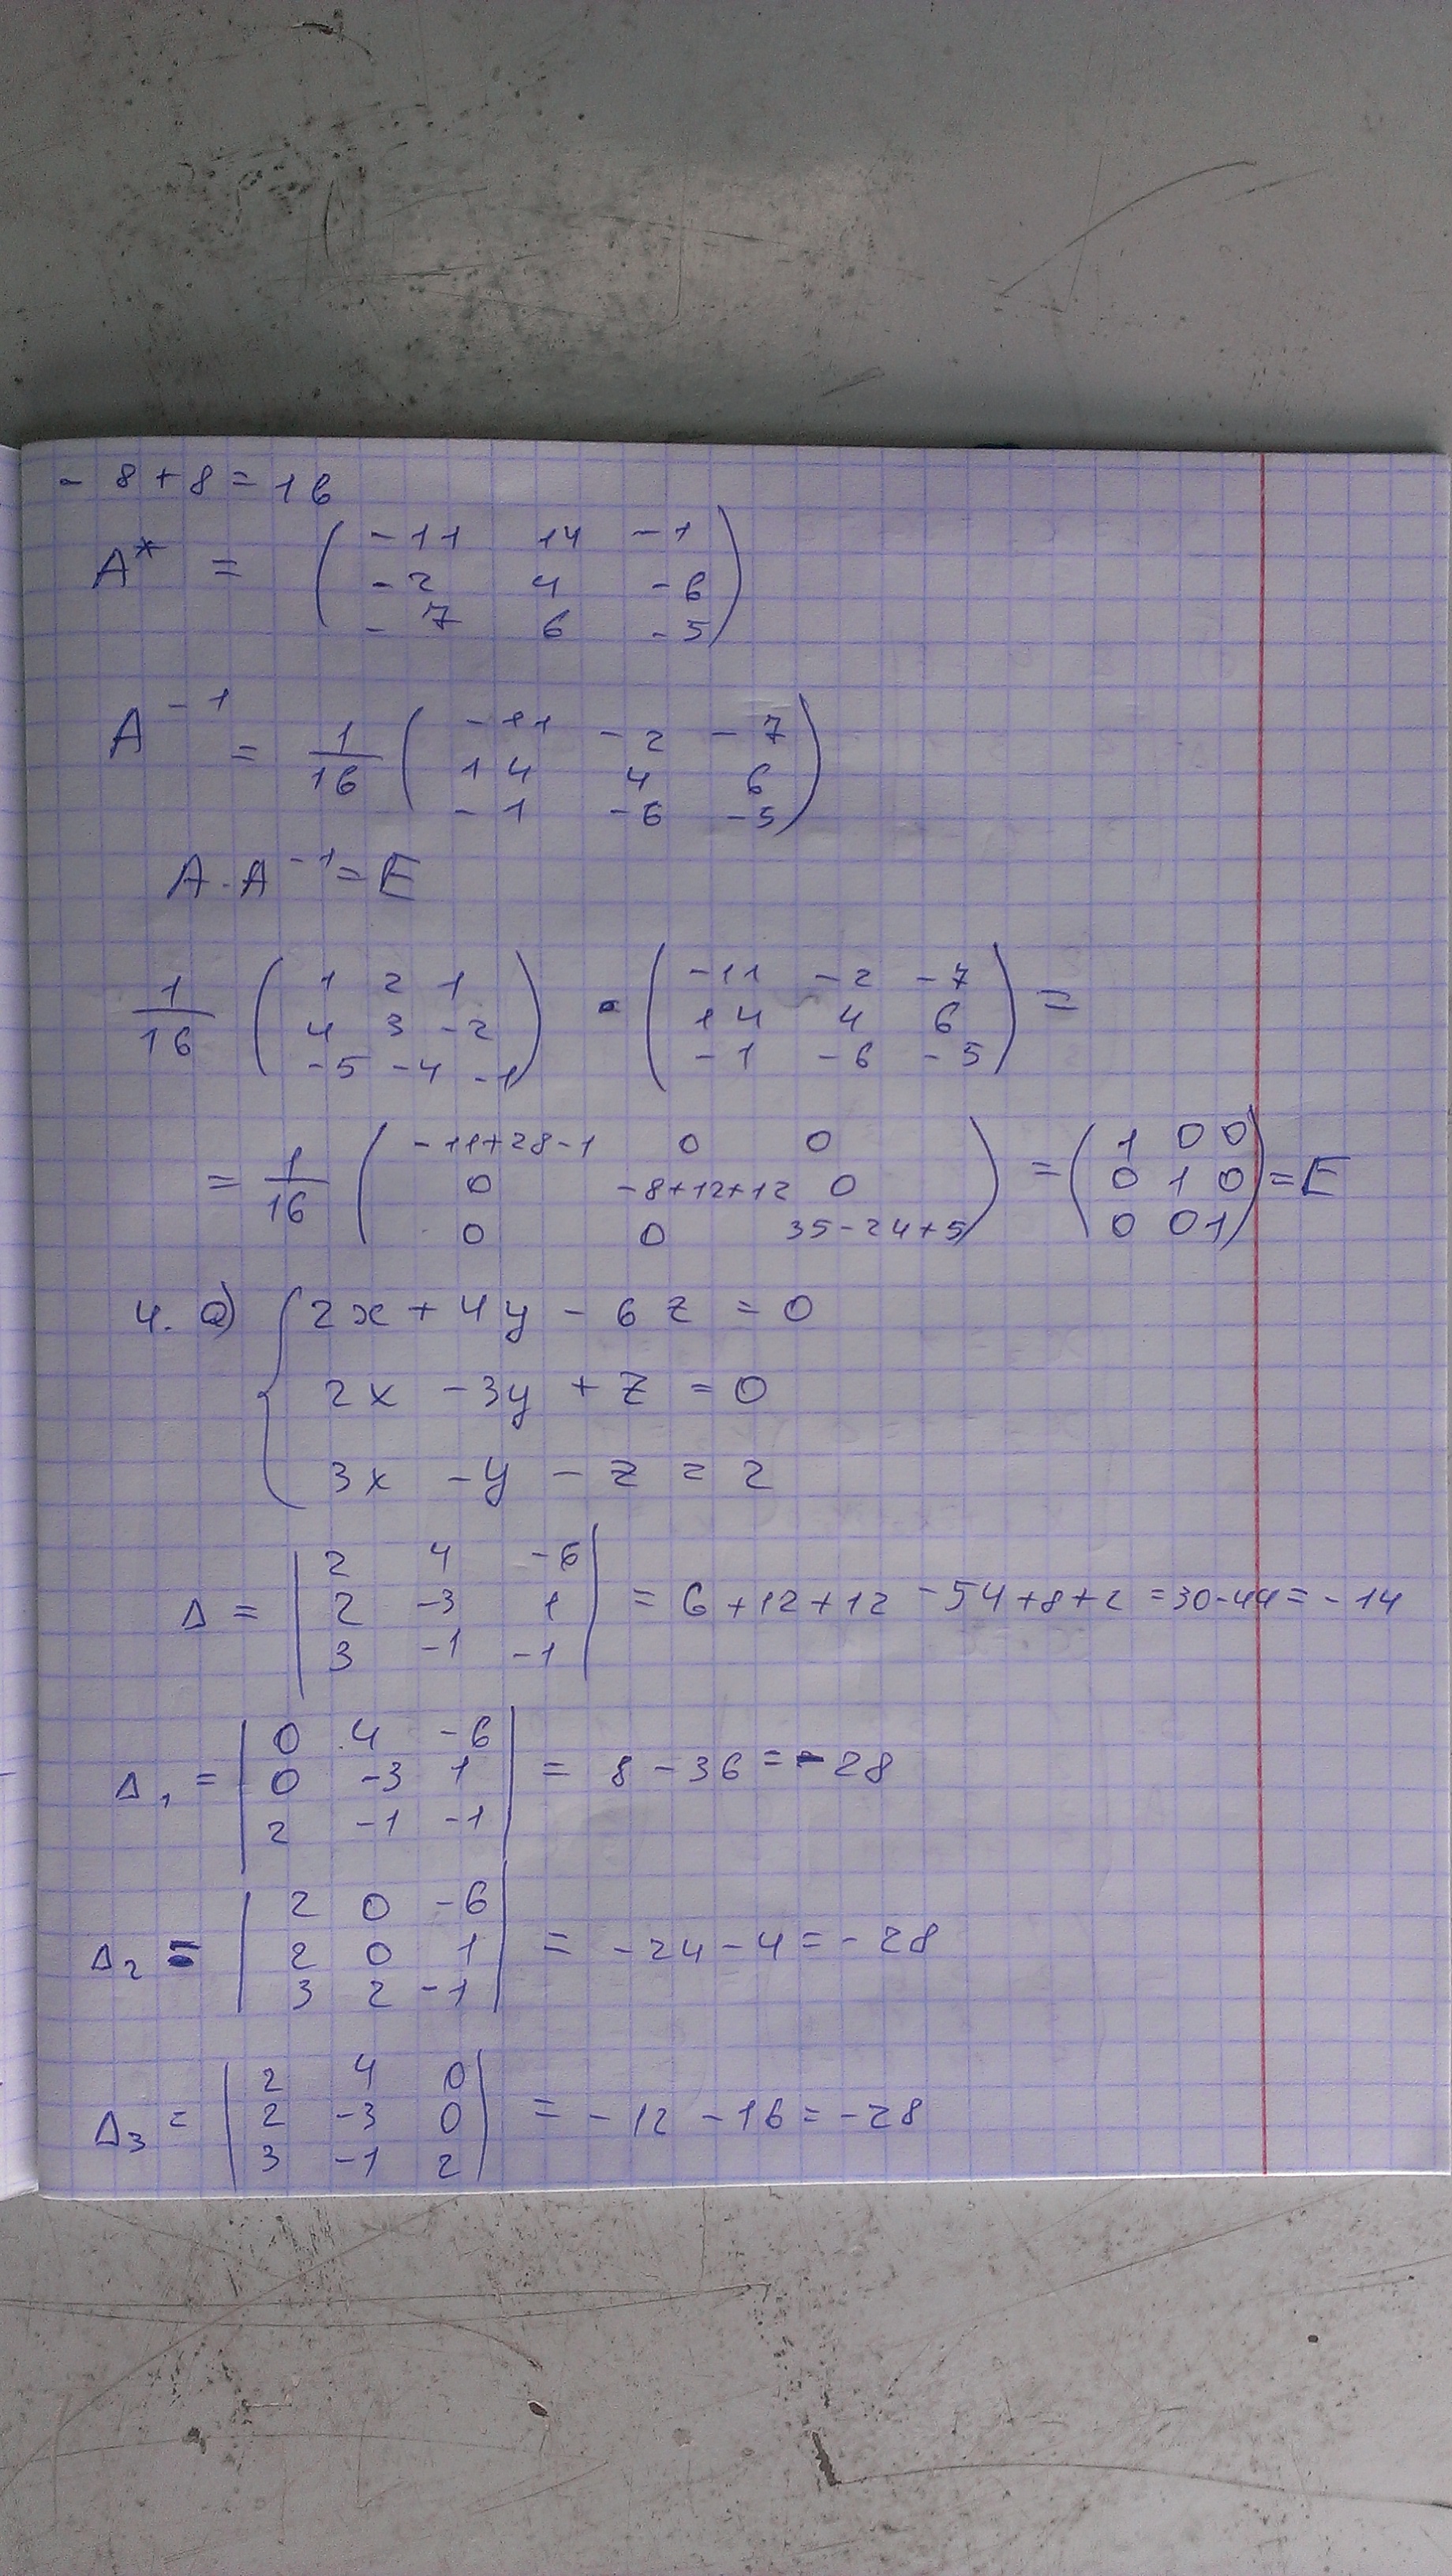 - 8 + 8 = 16
A* = ( -11 14 -1
-2 4 -6
-7 6 -5 )
A⁻¹ = 1/16 ( -11 -2 -7
14 4 6
-1 -6 -5 )
A · A⁻¹ = E
1/16 ( 1 2 1
4 3 -2
-5 -4 -1 ) · ( -11 -2 -7
14 4 6
-1 -6 -5 ) =
= 1/16 ( -11+28-1 0 0
0 -8+12+12 0
0 0 35-24+5 ) = ( 1 0 0
0 1 0
0 0 1 ) = E
4. а) { 2x + 4y - 6z = 0
2x - 3y + z = 0
3x - y - z = 2
Δ = | 2 4 -6
2 -3 1
3 -1 -1 | = 6 + 12 + 12 - 54 + 8 + 2 = 30 - 44 = -14
Δ₁ = | 0 4 -6
0 -3 1
2 -1 -1 | = 8 - 36 = -28
Δ₂ = | 2 0 -6
2 0 1
3 2 -1 | = -24 - 4 = -28
Δ₃ = | 2 4 0
2 -3 0
3 -1 2 | = -12 - 16 = -28